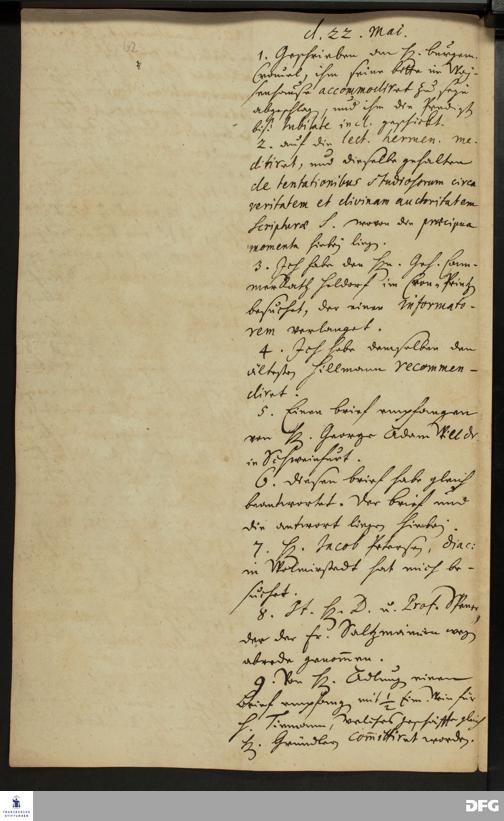 62
d. 22. Mai.
1. Geschrieben an H. bürgem.
Cromel, ihm seine bitte im Wey-
senhause accommodiret zu seyn
abgeschlagen, und ihm die Predigt
bis Jubilate incl. geschickt.
2. auf die lect. hermen. me-
ditiret, und dieselbe gehalten
de tentationibus studiosorum circa
veritatem et divinam auctoritatem
Scripturæ S. wovon die præcipua
momenta hiebey liegen.
3. Ich habe den Hn. Geh. Cam-
merRath Heldorf im Cron-Printz
besuchet, der einen Informato-
rem verlanget.
4. Ich habe demselben den
ältesten Hillmann recommen-
diret.
5. Einen brief empfangen
von H. George Adam
in Schweinfurt.
6. Diesen brief habe gleich
beantwortet. Der brief und
die antwort liegen hiebey.
7. H. Jacob Petersen, Diac:
in Wolmirstadt hat mich be-
suchet.
8. It. H. D. u. Prof. Spener,
der der Fr. Saltzmannin wegen
abrede genommen.
9. Von H. Adlung einen
brief empfangen mit ½ Eim. Wein für
H. Tiemann, welches gleich
H. Gründler committiret worden.
FRANCKESCHE
STIFTUNGEN
DFG